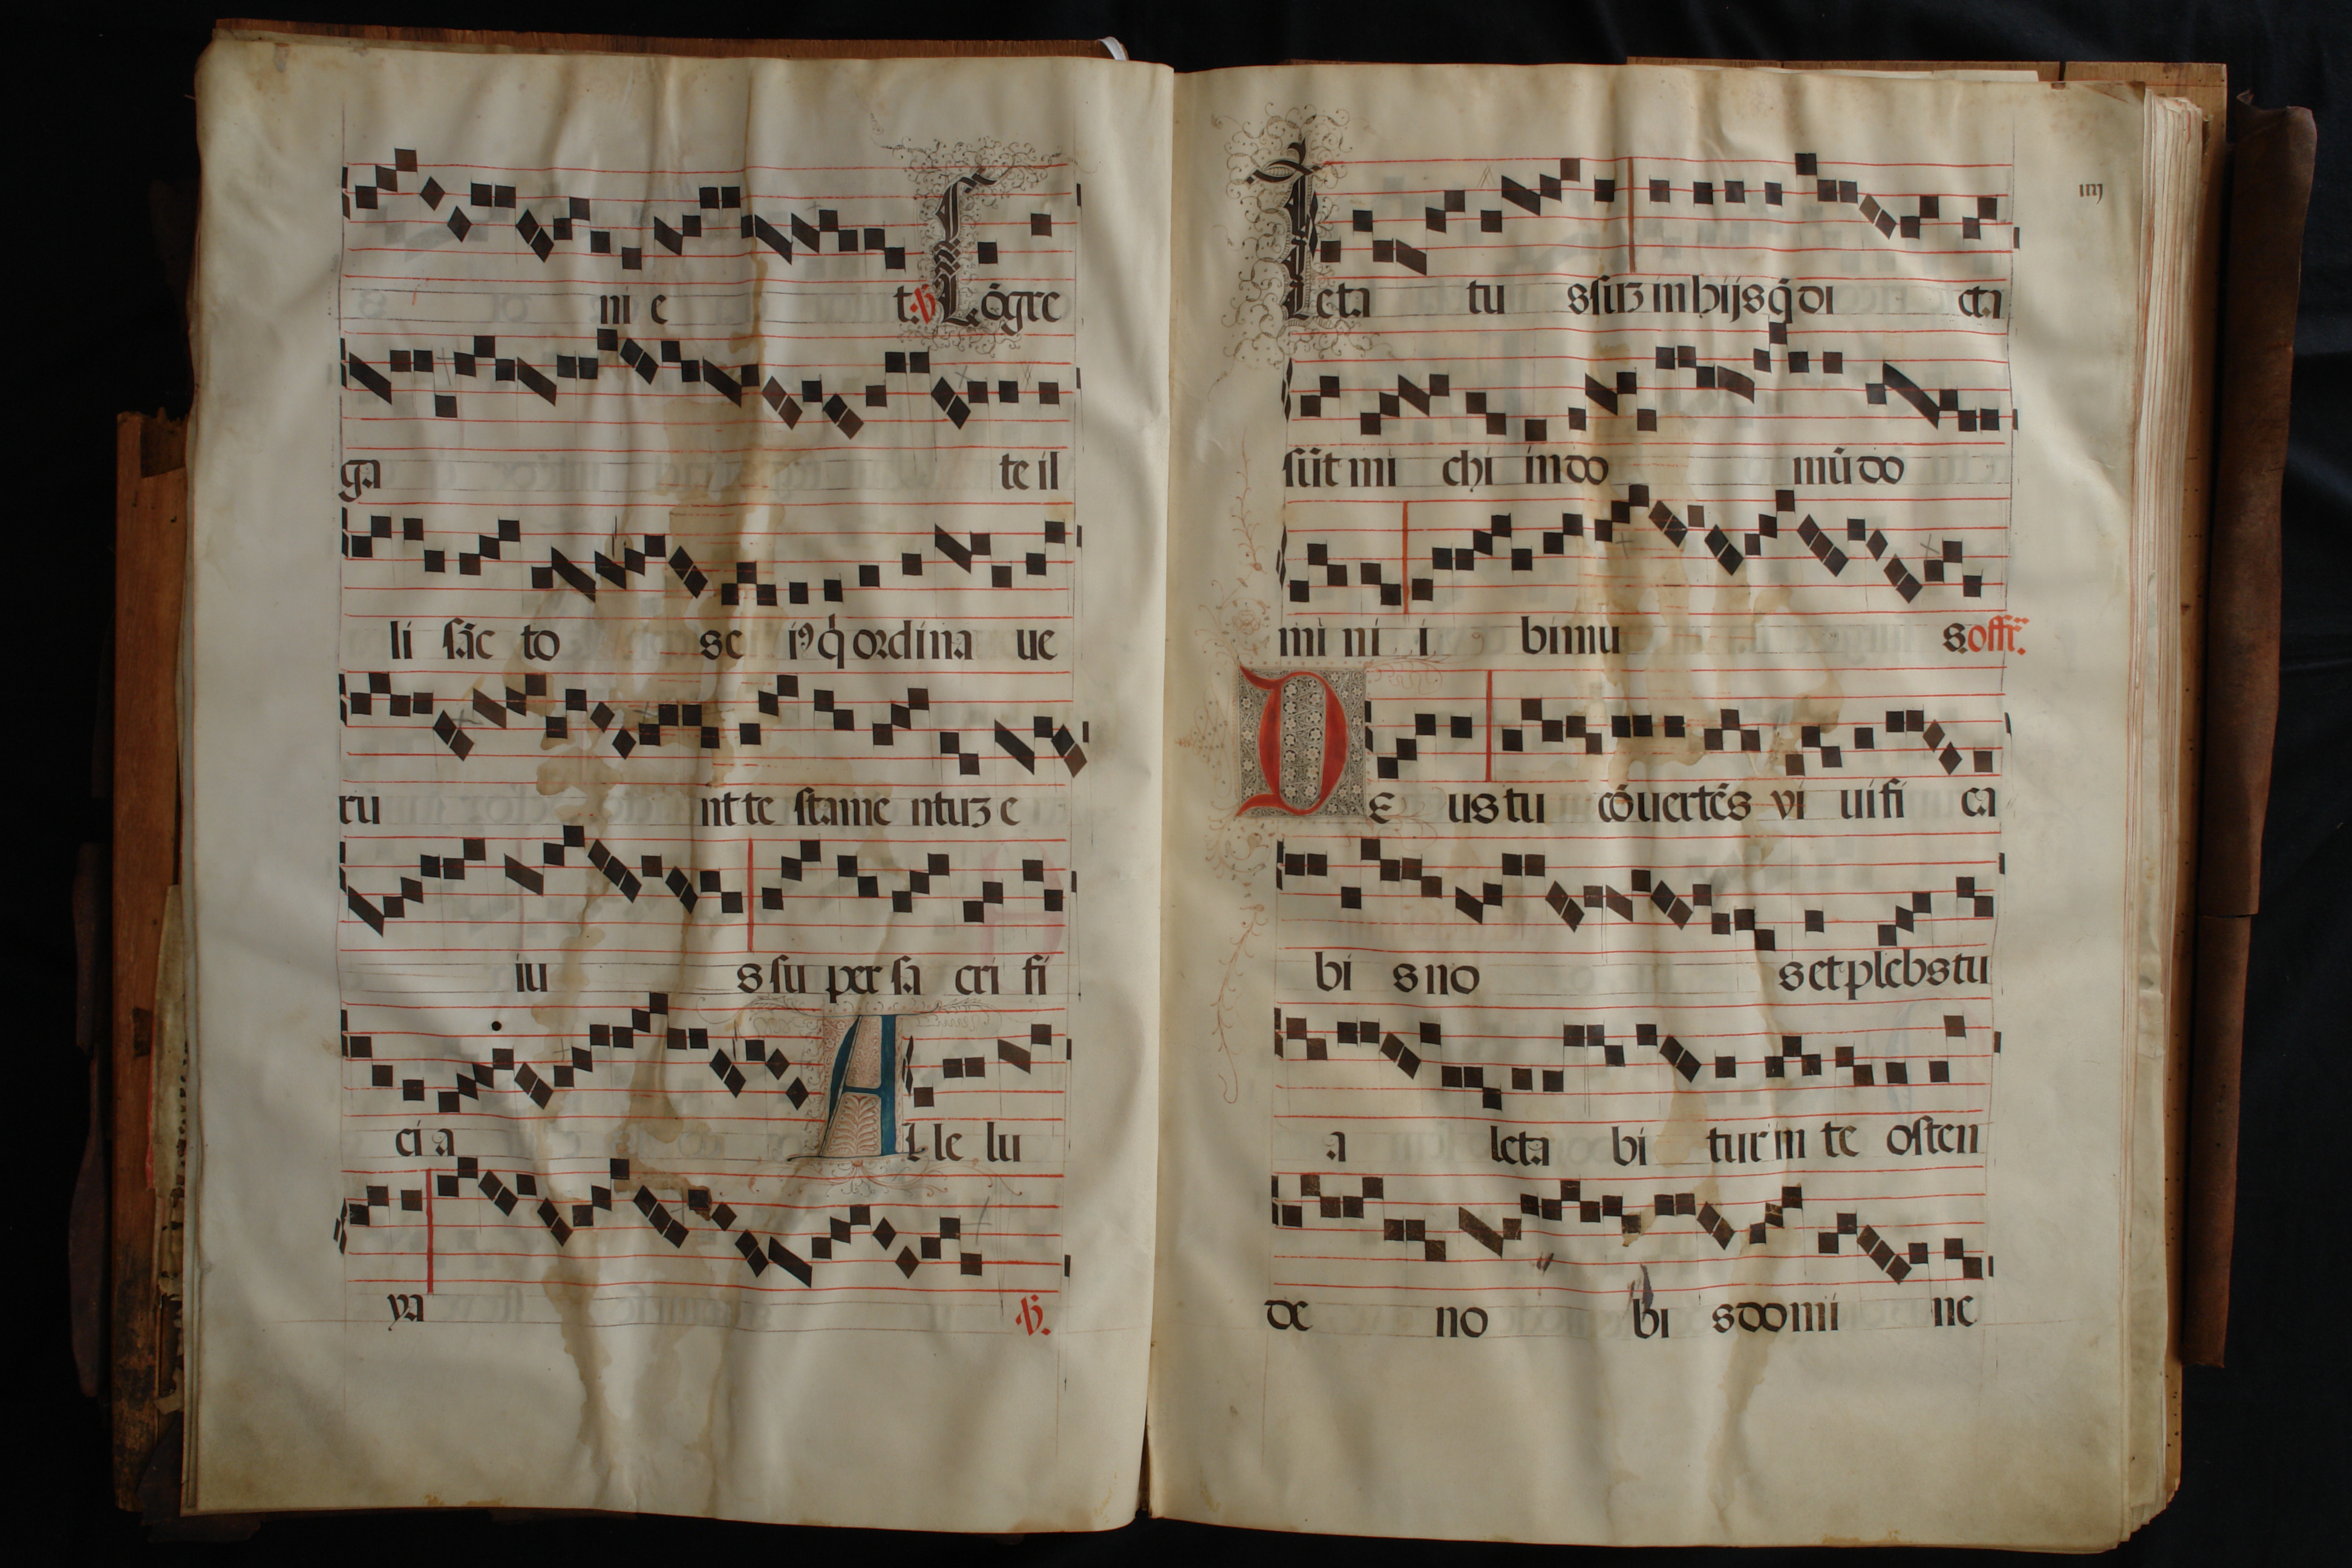 ni e t. ℣ Cõgre
ga te il
li sãc to sc i9 q̇ ordina ue
ru nt te stame ntuꝫ e
iu s su per sa cri fi
ci a A l le lu
ya ℣.
iiij
Leta tu s suꝫ in hijs q̄ di cta
sũt mi chi in do mũ do
mi ni i bimu s. offr̃.
D e us tu cõuertẽs vi uifi ca
bi s no s et plebs tu
a leta bi tur in te osten
de no bi s domi ne